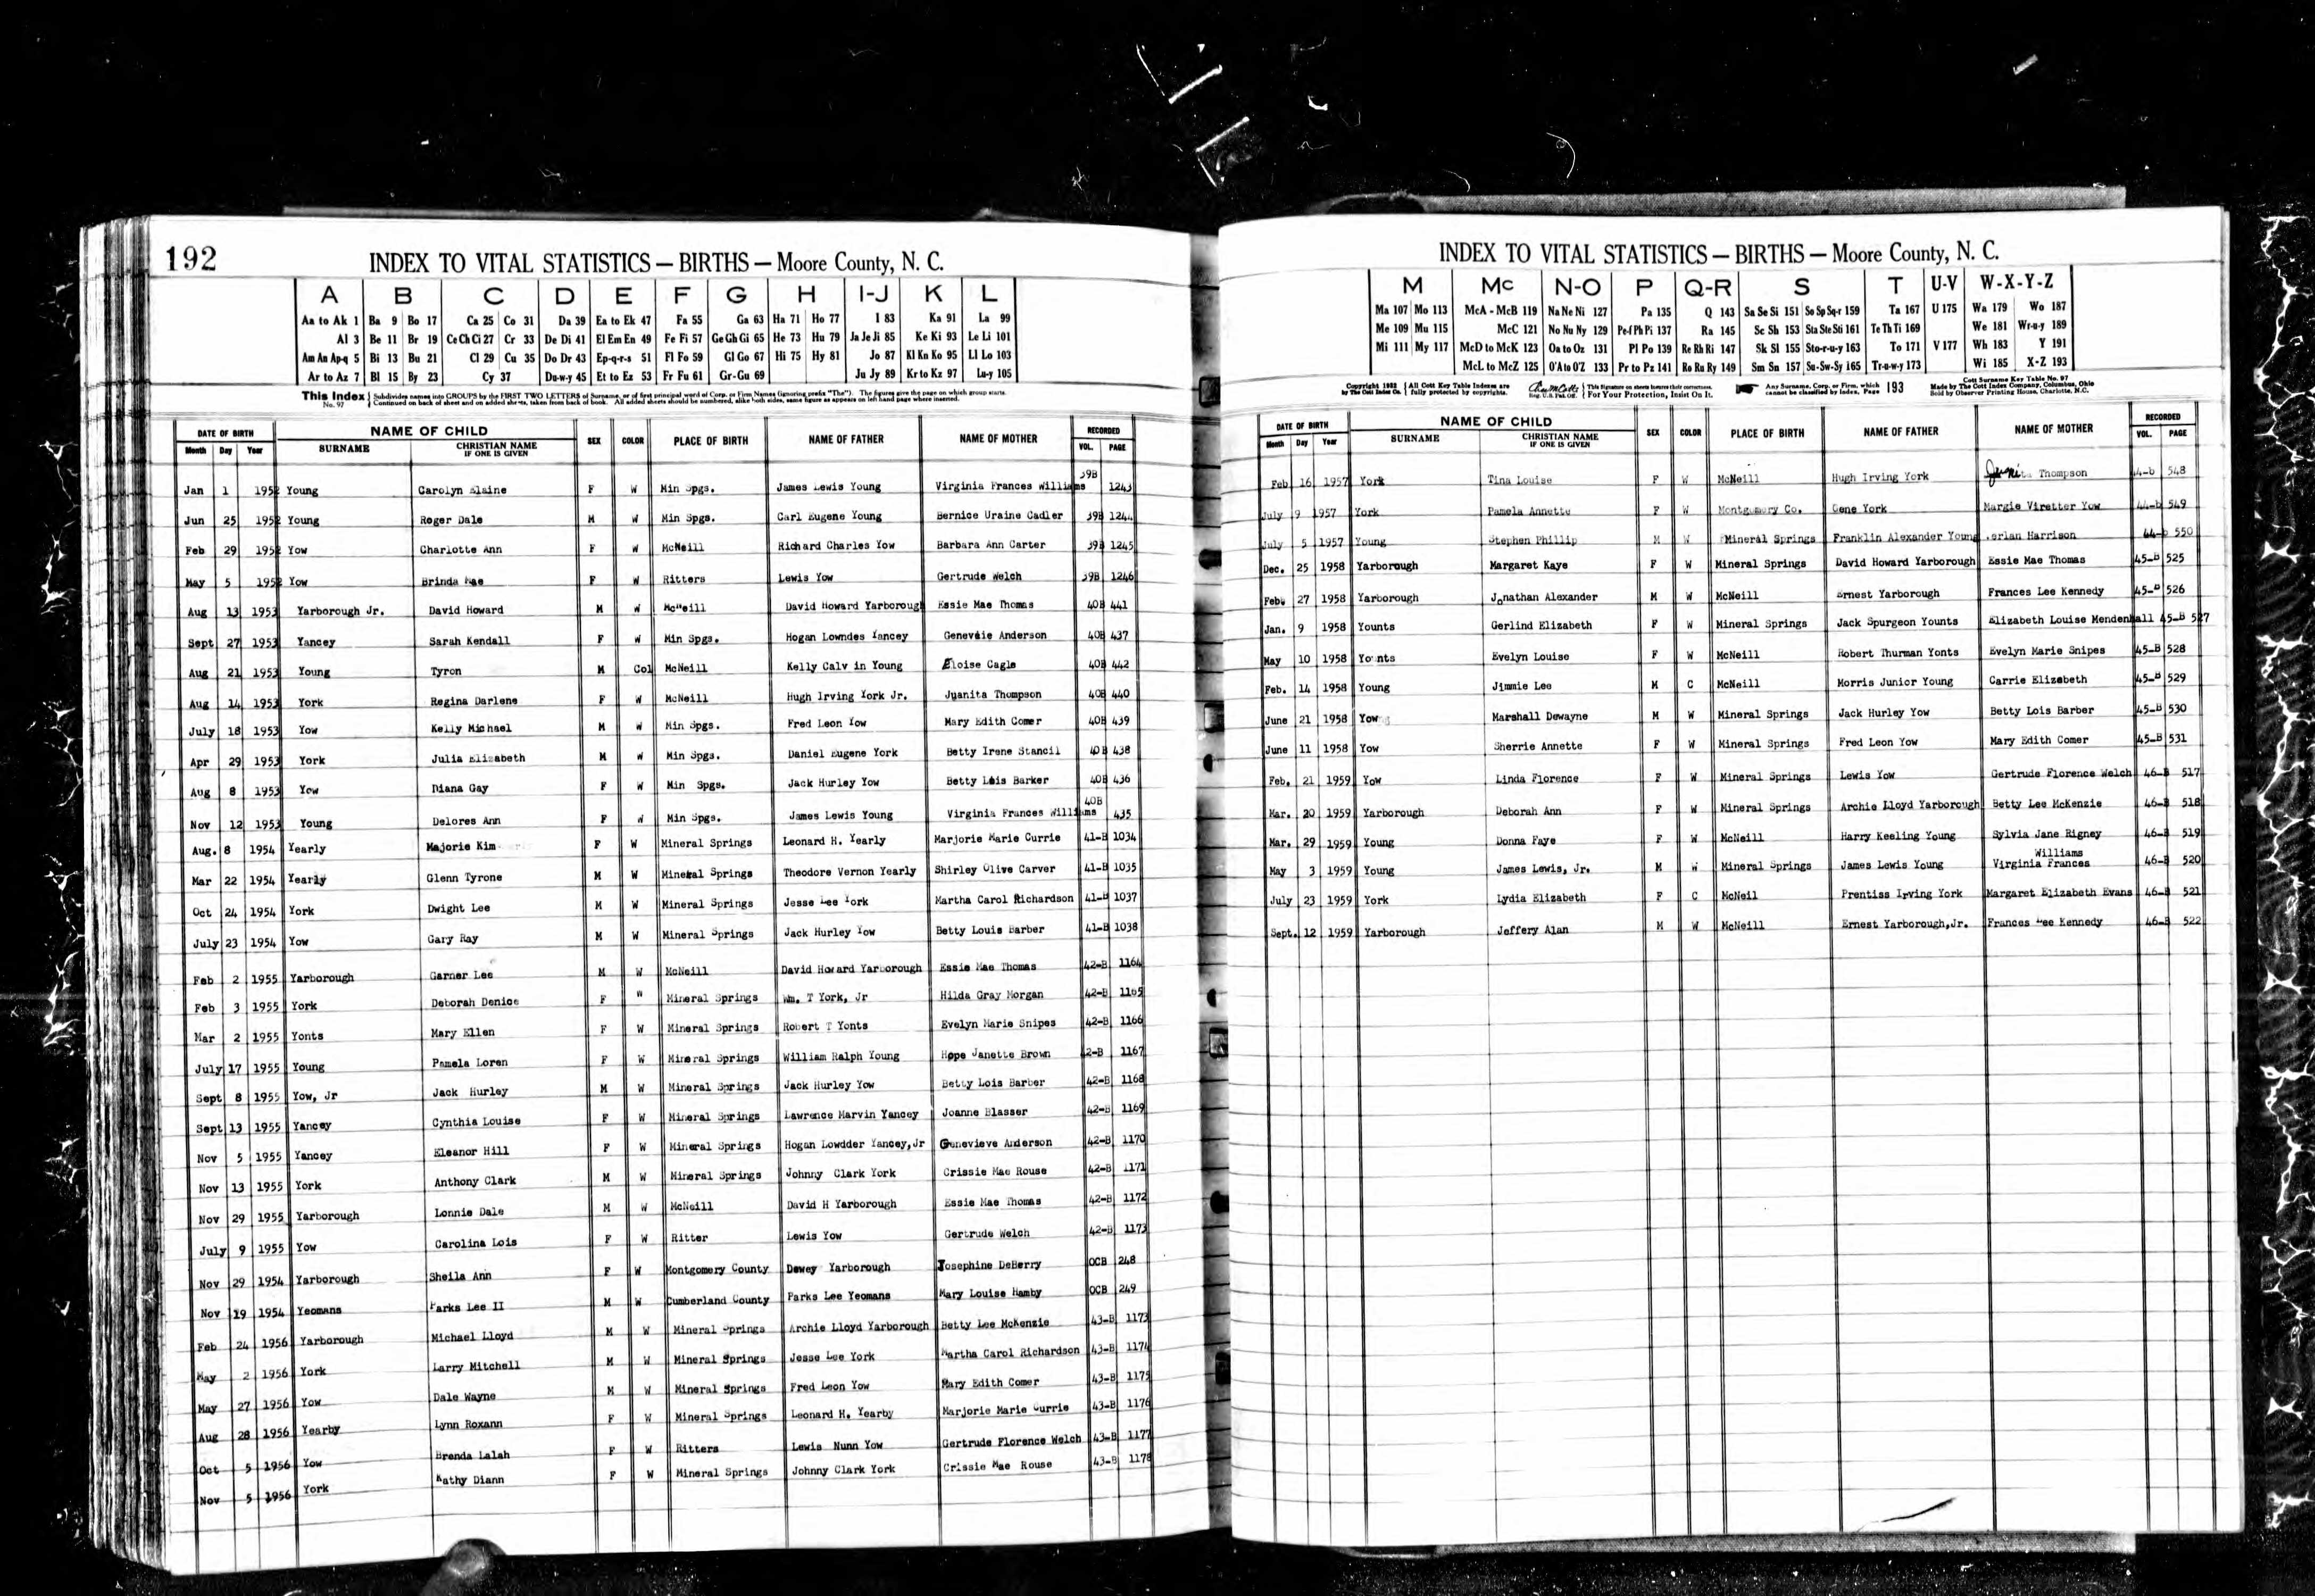 192
INDEX TO VITAL STATISTICS — BIRTHS — Moore County, N. C.
A B C D E F G H I-J K L
Aa to Ak 1 Ba 9 Bo 17 Ca 25 Co 31 Da 39 Ea to Ek 47 Fa 55 Ga 63 Ha 71 Ho 77 I 83 Ka 91 La 99
Al 3 Be 11 Br 19 Ce Ch Ci 27 Cr 33 De Di 41 El Em En 49 Fe Fi 57 Ge Gh Gi 65 He 73 Hu 79 Ja Je Ji 85 Ke Ki 93 Le Li 101
Am An Ap-q 5 Bi 13 Bu 21 Cl 29 Cu 35 Do Dr 43 Ep-q-r-s 51 Fl Fo 59 Gl Go 67 Hi 75 Hy 81 Jo 87 Kl Kn Ko 95 Ll Lo 103
Ar to Az 7 Bl 15 By 23 Cy 37 Du-w-y 45 Et to Ez 53 Fr Fu 61 Gr-Gu 69 Ju Jy 89 Kr to Kz 97 Lu-y 105
This Index No. 97 Subdivides names into GROUPS by the FIRST TWO LETTERS of Surname, or of first principal word of Corp. or Firm Names (ignoring prefix "The"). The figures give the page on which group starts.
Continued on back of sheet and on added sheets, taken from back of book. All added sheets should be numbered, alike both sides, same figure as appears on left hand page where inserted.
DATE OF BIRTH NAME OF CHILD SEX COLOR PLACE OF BIRTH NAME OF FATHER NAME OF MOTHER RECORDED
Month Day Year SURNAME CHRISTIAN NAME IF ONE IS GIVEN VOL. PAGE
Jan 1 1952 Young Carolyn Elaine F W Min Spgs. James Lewis Young Virginia Frances Williams 39B 1243
Jun 25 1952 Young Roger Dale M W Min Spgs. Carl Eugene Young Bernice Uraine Cadler 39B 1244
Feb 29 1952 Yow Charlotte Ann F W McNeill Richard Charles Yow Barbara Ann Carter 39B 1245
May 5 1952 Yow Brinda Mae F W Ritters Lewis Yow Gertrude Welch 39B 1246
Aug 13 1953 Yarborough Jr. David Howard M W McNeill David Howard Yarborough Essie Mae Thomas 40B 441
Sept 27 1953 Yancey Sarah Kendall F W Min Spgs. Hogan Lowndes Yancey Genevéie Anderson 40B 437
Aug 21 1953 Young Tyron M Col McNeill Kelly Calv in Young Eloise Cagle 40B 442
Aug 14 1953 York Regina Darlene F W McNeill Hugh Irving York Jr. Juanita Thompson 40B 440
July 18 1953 Yow Kelly Michael M W Min Spgs. Fred Leon Yow Mary Edith Comer 40B 439
Apr 29 1953 York Julia Elizabeth M W Min Spgs. Daniel Eugene York Betty Irene Stancil 40B 438
Aug 8 1953 Yow Diana Gay F W Min Spgs. Jack Hurley Yow Betty Lois Barker 40B 436
Nov 12 1953 Young Delores Ann F W Min Spgs. James Lewis Young Virginia Frances Williams 40B 435
Aug. 8 1954 Yearly Majorie Kim F W Mineral Springs Leonard H. Yearly Marjorie Marie Currie 41-B 1034
Mar 22 1954 Yearly Glenn Tyrone M W Mineral Springs Theodore Vernon Yearly Shirley Olive Carver 41-B 1035
Oct 24 1954 York Dwight Lee M W Mineral Springs Jesse Lee York Martha Carol Richardson 41-B 1037
July 23 1954 Yow Gary Ray M W Mineral Springs Jack Hurley Yow Betty Louis Barber 41-B 1038
Feb 2 1955 Yarborough Garner Lee M W McNeill David Howard Yarborough Essie Mae Thomas 42-B 1164
Feb 3 1955 York Deborah Denice F W Mineral Springs Wm. T York, Jr Hilda Gray Morgan 42-B 1165
Mar 2 1955 Yonts Mary Ellen F W Mineral Springs Robert T Yonts Evelyn Marie Snipes 42-B 1166
July 17 1955 Young Pamela Loren F W Mineral Springs William Ralph Young Hope Janette Brown 42-B 1167
Sept 8 1955 Yow, Jr Jack Hurley M W Mineral Springs Jack Hurley Yow Betty Lois Barber 42-B 1168
Sept 13 1955 Yancey Cynthia Louise F W Mineral Springs Lawrence Marvin Yancey Joanne Blasser 42-B 1169
Nov 5 1955 Yancey Eleanor Hill F W Mineral Springs Hogan Lowdder Yancey, Jr Genevieve Anderson 42-B 1170
Nov 13 1955 York Anthony Clark M W Mineral Springs Johnny Clark York Crissie Mae Rouse 42-B 1171
Nov 29 1955 Yarborough Lonnie Dale M W McNeill David H Yarborough Essie Mae Thomas 42-B 1172
July 9 1955 Yow Carolina Lois F W Ritter Lewis Yow Gertrude Welch 42-B 1173
Nov 29 1954 Yarborough Sheila Ann F W Montgomery County Dewey Yarborough Josephine DeBerry OCB 248
Nov 19 1954 Yeomans Parks Lee II M W Cumberland County Parks Lee Yeomans Mary Louise Hamby OCB 249
Feb 24 1956 Yarborough Michael Lloyd M W Mineral Springs Archie Lloyd Yarborough Betty Lee McKenzie 43-B 1173
May 2 1956 York Larry Mitchell M W Mineral Springs Jesse Lee York Martha Carol Richardson 43-B 1174
May 27 1956 Yow Dale Wayne M W Mineral Springs Fred Leon Yow Mary Edith Comer 43-B 1175
Aug 28 1956 Yearby Lynn Roxann F W Mineral Springs Leonard H. Yearby Marjorie Marie Currie 43-B 1176
Oct 5 1956 Yow Brenda Lalah F W Ritters Lewis Nunn Yow Gertrude Florence Welch 43-B 1177
Nov 5 1956 York Kathy Diann F W Mineral Springs Johnny Clark York Crissie Mae Rouse 43-B 1178
INDEX TO VITAL STATISTICS — BIRTHS — Moore County, N. C.
M Mc N-O P Q-R S T U-V W-X-Y-Z
Ma 107 Mo 113 McA - McB 119 Na Ne Ni 127 Pa 135 Q 143 Sa Se Si 151 So Sp Sq-r 159 Ta 167 U 175 Wa 179 Wo 187
Me 109 Mu 115 McC 121 No Nu Ny 129 Pe-f Ph Pi 137 Ra 145 Sc Sh 153 Sta Ste Sti 161 Te Th Ti 169 We 181 Wr-u-y 189
Mi 111 My 117 McD to McK 123 Oa to Oz 131 Pl Po 139 Re Rh Ri 147 Sk Sl 155 Sto-r-u-y 163 To 171 V 177 Wh 183 Y 191
McL to McZ 125 O'A to O'Z 133 Pr to Pz 141 Ro Ru Ry 149 Sm Sn 157 Su-Sw-Sy 165 Tr-u-w-y 173 Wi 185 X-Z 193
Copyright 1952 by The Cott Index Co. All Cott Key Table Indexes are fully protected by copyrights. Reg. U.S. Pat. Off. This Signature on sheets insures their correctness. For Your Protection, Insist On It. Any Surname, Corp. or Firm, which cannot be classified by Index, Page 193
Cott Surname Key Table No. 97
Made by The Cott Index Company, Columbus, Ohio
Sold by Observer Printing House, Charlotte, N.C.
DATE OF BIRTH NAME OF CHILD SEX COLOR PLACE OF BIRTH NAME OF FATHER NAME OF MOTHER RECORDED
Month Day Year SURNAME CHRISTIAN NAME IF ONE IS GIVEN VOL. PAGE
Feb 16 1957 York Tina Louise F W McNeill Hugh Irving York Juanita Thompson 44-b 548
July 9 1957 York Pamela Annette F W Montgomery Co. Gene York Margie Viretter Yow 44-b 549
July 5 1957 Young Stephen Phillip M W Mineral Springs Franklin Alexander Young Harrison 44-b 550
Dec. 25 1958 Yarborough Margaret Kaye F W Mineral Springs David Howard Yarborough Essie Mae Thomas 45-B 525
Feb. 27 1958 Yarborough Jonathan Alexander M W McNeill Ernest Yarborough Frances Lee Kennedy 45-B 526
Jan. 9 1958 Younts Gerlind Elizabeth F W Mineral Springs Jack Spurgeon Younts Elizabeth Louise Mendenhall 45-B 527
May 10 1958 Younts Evelyn Louise F W McNeill Robert Thurman Yonts Evelyn Marie Snipes 45-B 528
Feb. 14 1958 Young Jimmie Lee M C McNeill Morris Junior Young Carrie Elizabeth 45-B 529
June 21 1958 Yow Marshall Dewayne M W Mineral Springs Jack Hurley Yow Betty Lois Barber 45-B 530
June 11 1958 Yow Sherrie Annette F W Mineral Springs Fred Leon Yow Mary Edith Comer 45-B 531
Feb. 21 1959 Yow Linda Florence F W Mineral Springs Lewis Yow Gertrude Florence Welch 46-B 517
Mar. 20 1959 Yarborough Deborah Ann F W Mineral Springs Archie Lloyd Yarborough Betty Lee McKenzie 46-B 518
Mar. 29 1959 Young Donna Faye F W McNeill Harry Keeling Young Sylvia Jane Rigney 46-B 519
May 3 1959 Young James Lewis, Jr. M W Mineral Springs James Lewis Young Virginia Frances Williams 46-B 520
July 23 1959 York Lydia Elizabeth F C McNeil Prentiss Irving York Margaret Elizabeth Evans 46-B 521
Sept. 12 1959 Yarborough Jeffery Alan M W McNeill Ernest Yarborough, Jr. Frances Lee Kennedy 46-B 522